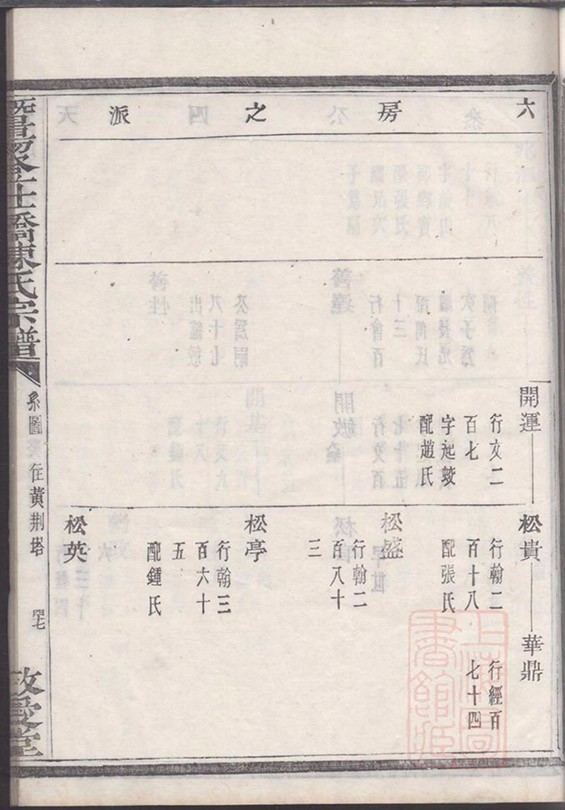 六房之派
開運
行文二
百七
字起蛟
配趙氏
松貴
行翰二
百十八
配張氏
華鼎
行經百
七十四
松盛
行翰二
百八十
三
松亭
行翰三
百六十
五
配鍾氏
松英
橋陳氏宗譜
系圖
住黃荆塔